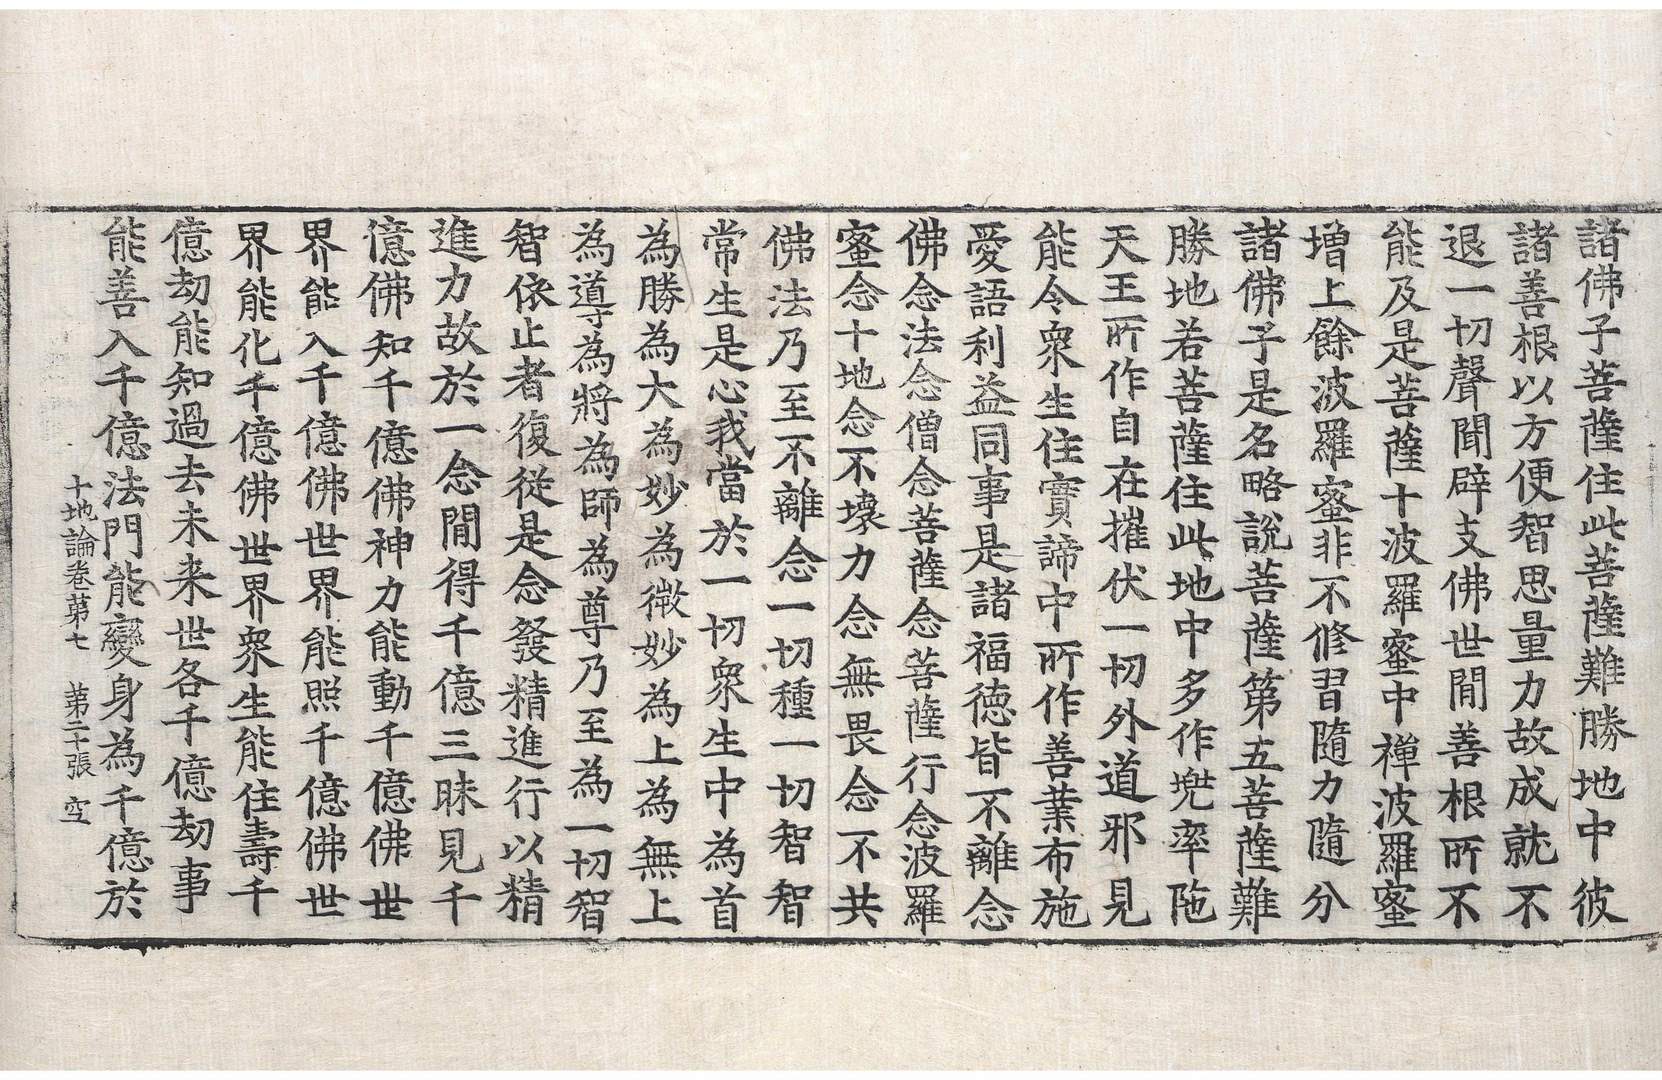 諸佛子菩薩住此菩薩難勝地中彼
諸善根以方便智思量力故成就不
退一切聲聞辟支佛世間善根所不
能及是菩薩十波羅蜜中禅波羅蜜
增上餘波羅蜜非不修習隨力隨分
諸佛子是名略說菩薩第五菩薩難
勝地若菩薩住此地中多作兠率陁
天王所作自在摧伏一切外道邪見
能令衆生住實諦中所作善業布施
愛語利益同事是諸福德皆不離念
佛念法念僧念菩薩念菩薩行念波羅
蜜念十地念不壞力念無畏念不共
佛法乃至不離念一切種一切智智
常生是心我當於一切衆生中為首
為勝為大為妙為微妙為上為無上
為導為將為師為尊乃至為一切智
智依止者復從是念發精進行以精
進力故於一念間得千億三昧見千
億佛知千億佛神力能動千億佛世
界能入千億佛世界能照千億佛世
界能化千億佛世界衆生能住壽千
億劫能知過去未来世各千億劫事
能善入千億法門能變身為千億於
十地論卷第七 第二十張 空